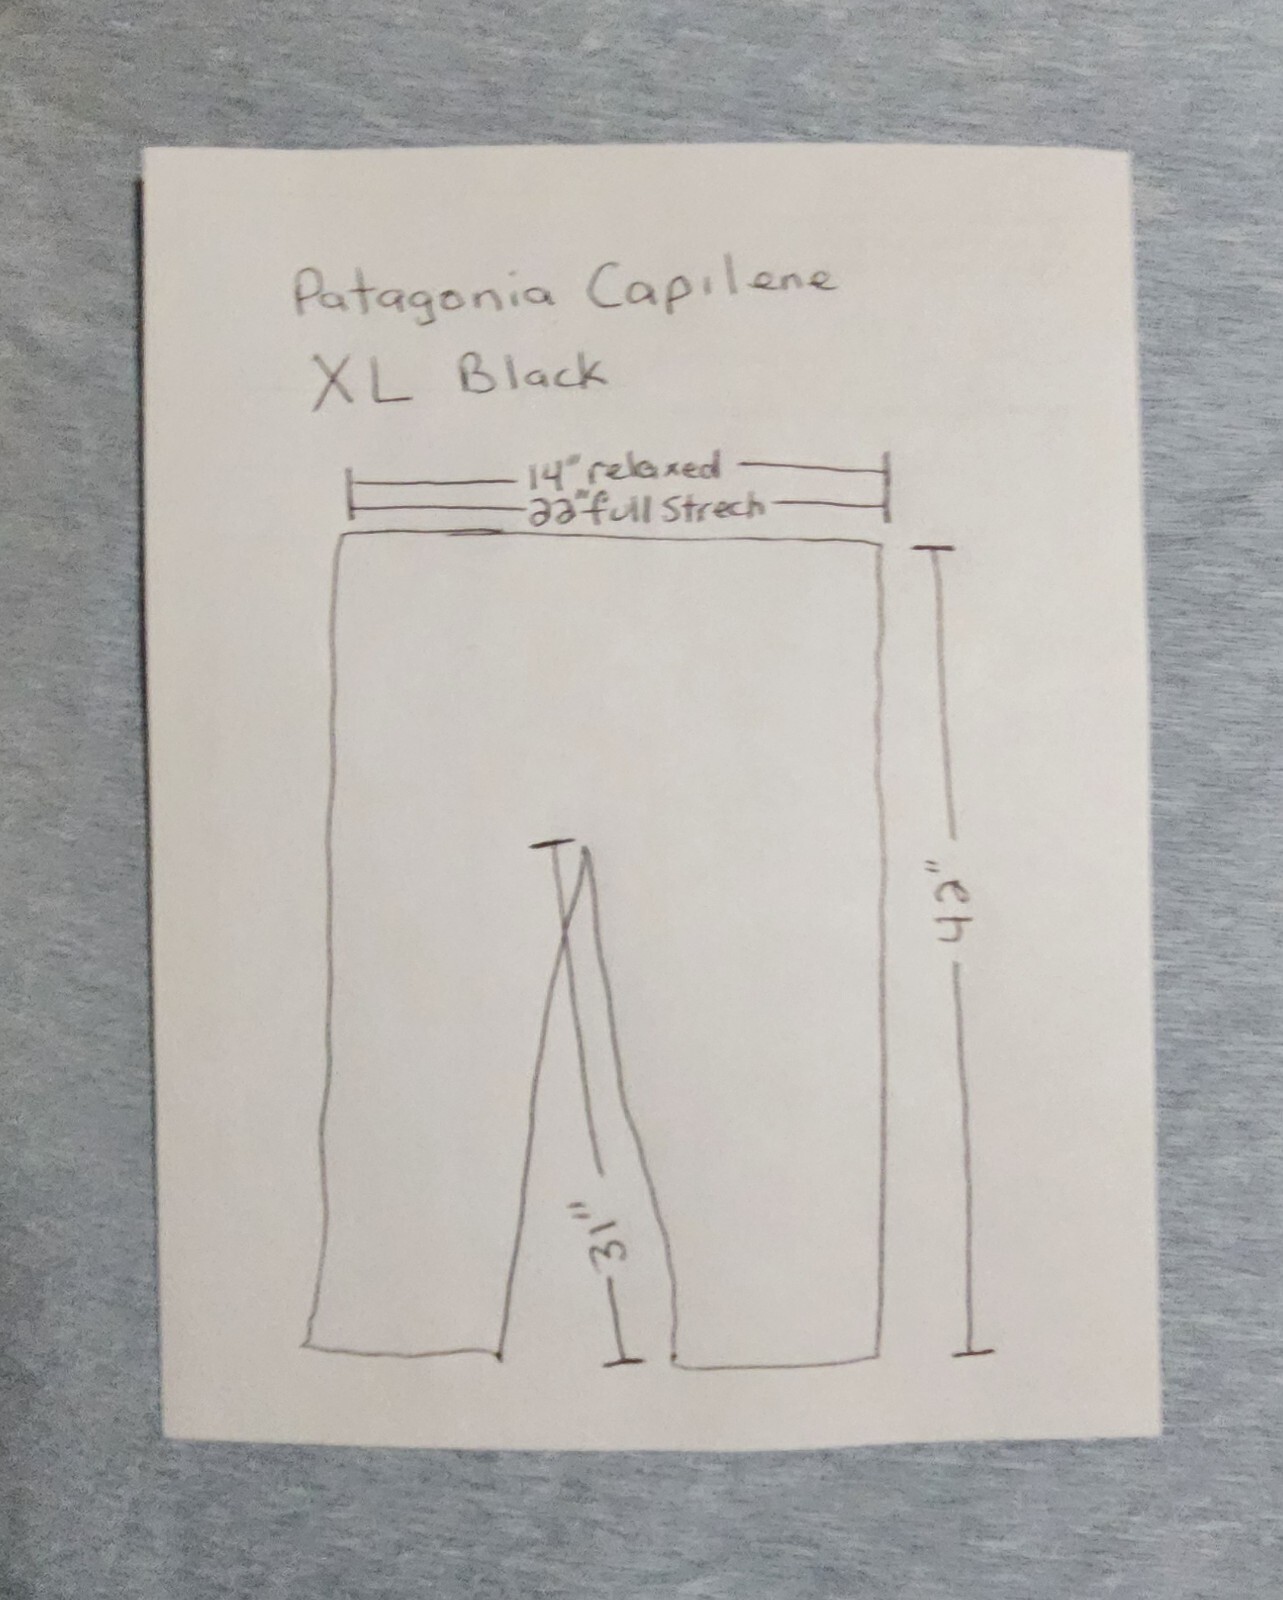 Patagonia Capilene
XL Black
14" relaxed
22" full Strech
42"
31"